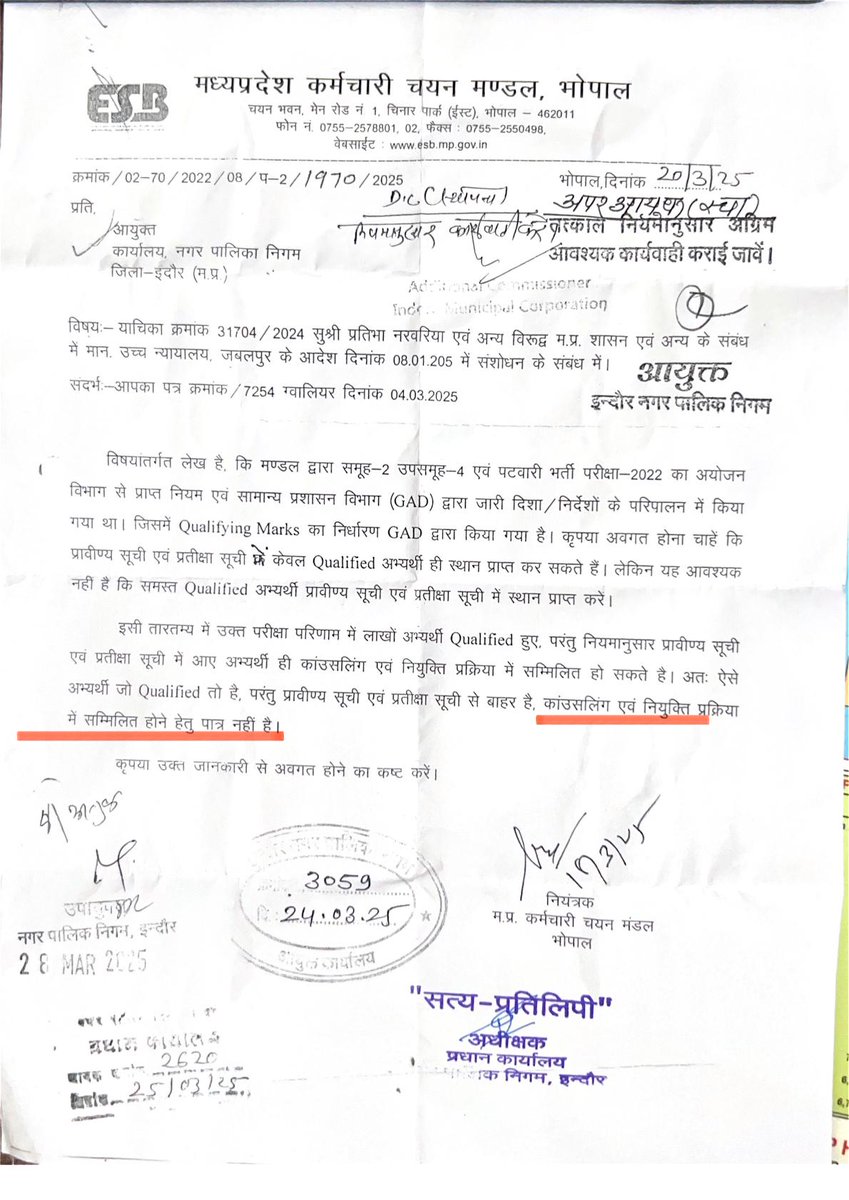 ESB
मध्यप्रदेश कर्मचारी चयन मण्डल, भोपाल
चयन भवन, मेन रोड नं 1, चिनार पार्क (ईस्ट), भोपाल – 462011
फोन नं. 0755-2578801, 02, फैक्स : 0755-2550498,
वेबसाईट : www.esb.mp.gov.in
क्रमांक/02-70/2022/08/प-2/1970/2025
भोपाल,दिनांक 20/3/25
प्रति,
आयुक्त
कार्यालय, नगर पालिका निगम
जिला-इंदौर (म.प्र.)
D.C (स्थापना)
नियमानुसार कार्यवाही करें
अपर आयुक्त (स्था)
तत्काल नियमानुसार अग्रिम
आवश्यक कार्यवाही कराई जावें।
Additional Commissioner
Indore Municipal Corporation
विषयः– याचिका क्रमांक 31704/2024 सुश्री प्रतिभा नरवरिया एवं अन्य विरूद्व म.प्र. शासन एवं अन्य के संबंध
में मान. उच्च न्यायालय, जबलपुर के आदेश दिनांक 08.01.205 में संशोधन के संबंध में।
आयुक्त
इन्दौर नगर पालिक निगम
संदर्भः–आपका पत्र क्रमांक/7254 ग्वालियर दिनांक 04.03.2025
विषयांतर्गत लेख है, कि मण्डल द्वारा समूह-2 उपसमूह-4 एवं पटवारी भर्ती परीक्षा-2022 का अयोजन
विभाग से प्राप्त नियम एवं सामान्य प्रशासन विभाग (GAD) द्वारा जारी दिशा/निर्देशों के परिपालन में किया
गया था। जिसमें Qualifying Marks का निर्धारण GAD द्वारा किया गया है। कृपया अवगत होना चाहें कि
प्रावीण्य सूची एवं प्रतीक्षा सूची में केवल Qualified अभ्यर्थी ही स्थान प्राप्त कर सकते हैं। लेकिन यह आवश्यक
नहीं है कि समस्त Qualified अभ्यर्थी प्रावीण्य सूची एवं प्रतीक्षा सूची में स्थान प्राप्त करें।
इसी तारतम्य में उक्त परीक्षा परिणाम में लाखों अभ्यर्थी Qualified हुए, परंतु नियमानुसार प्रावीण्य सूची
एवं प्रतीक्षा सूची में आए अभ्यर्थी ही कांउसलिंग एवं नियुक्ति प्रक्रिया में सम्मिलित हो सकते है। अतः ऐसे
अभ्यर्थी जो Qualified तो है, परंतु प्रावीण्य सूची एवं प्रतीक्षा सूची से बाहर है, कांउसलिंग एवं नियुक्ति प्रक्रिया
में सम्मिलित होने हेतु पात्र नहीं है।
कृपया उक्त जानकारी से अवगत होने का कष्ट करें।
17/3/25
नियंत्रक
म.प्र. कर्मचारी चयन मंडल
भोपाल
उपायुक्त
नगर पालिक निगम, इन्दौर
28 MAR 2025
3059
24.03.25
आयुक्त कार्यालय
"सत्य-प्रतिलिपी"
अधीक्षक
प्रधान कार्यालय
पालिक निगम, इन्दौर
प्रधान कार्यालय
2620
दिनांक 25/03/25